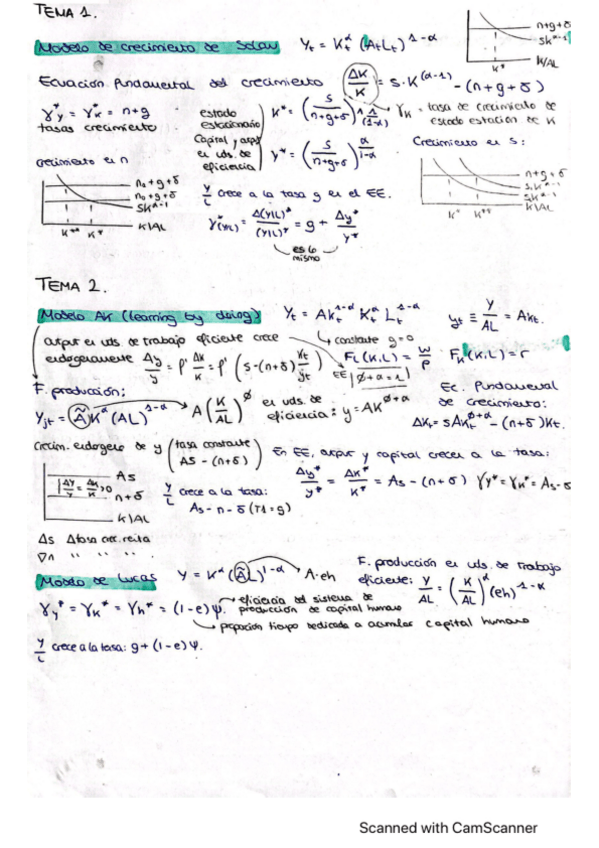 TEMA 1.
Modelo de crecimiento de Solow Yt = Kt^α (AtLt)^1-α
n+g+δ
sk^α-1
K/AL
K*
Ecuación fundamental del crecimiento ΔK/K = s·K^(α-1) - (n+g+δ)
γy* = γk* = n+g
tasas crecimiento
estado estacionario
Capital y output en uds. de eficiencia
K* = (s/(n+g+δ))^1/(1-α)
y* = (s/(n+g+δ))^α/1-α
γk = tasa de crecimiento de estado estación de K
Crecimiento en n
n1+g+δ
n0+g+δ
sk^α-1
K/AL
K** K*
Y/L crece a la tasa g en el EE.
γ(Y/L)* = Δ(Y/L)*/(Y/L)* = g + Δy*/y*
es lo mismo
Crecimiento en s:
n+g+δ
s1k^α-1
sk^α-1
K/AL
K* K**
TEMA 2.
Modelo AK (learning by doing) Yt = AKt^1-α Kt^α Lt^1-α
yt ≡ Y/AL = AKt.
constante g=0
output en uds de trabajo eficiente crece
endogenamente Δy/y = f' ΔK/K = f' (s-(n+δ) Kt/yt)
FL(K,L) = W/P FK(K,L) = r
EE |Ø+α=1|
F. producción:
Yjt = Ã K^α (AL)^1-α
A(K/AL)^Ø en uds. de eficiencia: y = AK^Ø+α
Ec. Fundamental de crecimiento:
ΔKt = sAKt^Ø+α - (n+δ)Kt.
Crecim. endogeno de y (tasa constante As - (n+δ))
En EE, output y capital crecen a la tasa:
Δy*/y* = ΔK*/K* = As - (n+δ) γy* = γk* = As-δ
As
|ΔY/Y = ΔK/K > 0
n+δ
K/AL
Y/L crece a la tasa:
As - n - δ (+1=g)
Δs Δtasa crec. renta
∇n " " "
Modelo de Lucas Y = K^α (ÃL)^1-α A·eh
F. producción en uds. de trabajo
eficiente: Y/AL = (K/AL)^α (eh)^1-α
γy* = γk* = γh* = (1-e)ψ.
eficiencia del sistema de producción de capital humano
proporción tiempo dedicada a acumular capital humano
Y/L crece a la tasa: g + (1-e) ψ.
Scanned with CamScanner